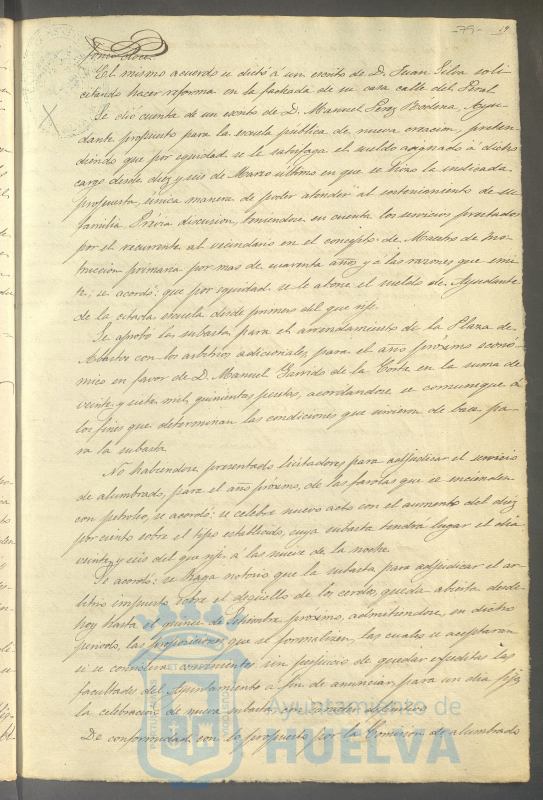 -79- 19
El mismo acuerdo se dictó á un escrito de D. Juan Silva soli-
citando hacer reforma en la fachada de su casa calle del Peral.
Se dio cuenta de un escrito de D. Manuel Perez Bodena, Ayu-
dante propuesto para la escuela publica de nueva creacion, preten-
diendo que por equidad se le satisfaga el sueldo asignado á dicho
cargo desde diez y seis de Marzo ultimo en que se hizo la indicada
propuesta, unica manera de poder atender al sostenimiento de su
familia. Prévia discusion, teniendose en cuenta los servicios prestados
por el recurrente al vecindario en el concepto de Maestro de Ins-
truccion primaria por mas de cuarenta años y á las razones que emi-
te; se acordó: que por equidad se le abone el sueldo de Ayudante
de la citada escuela desde primero del que rije.
Se aprobó la subasta para el arrendamiento de la Plaza de
Abastos con los arbitrios adicionales, para el año próximo econó-
mico en favor de D. Manuel Garrido de la Corte en la suma de
veinte y siete mil quinientas pesetas, acordandose se comunique á
los fines que determinan las condiciones que sirvieron de base pa-
ra la subasta.
No habiendose presentado licitadores para adjudicar el servicio
de alumbrado, para el año próximo, de las farolas que se encienden
con petroleo, se acordó: se celebre nuevo acto con el aumento del diez
por ciento sobre el tipo establecido, cuya subasta tendra lugar el dia
veinte y seis del que rije á las nueve de la noche.
Se acordó: se haga notorio que la subasta para adjudicar el ar-
bitrio impuesto sobre el degüello de los cerdos, queda abierta desde
hoy hasta el quince de Septiembre próximo, admitiendose, en dicho
periodo, las proposiciones que se formalicen, las cuales se aceptaran
si se consideran convenientes, sin perjuicio de quedar expeditas las
facultades del Ayuntamiento á fin de anunciar para un dia fijo
la celebracion de nueva subasta
De conformidad con lo propuesto por la Comision de alumbrado
Ayuntamiento de
HUELVA